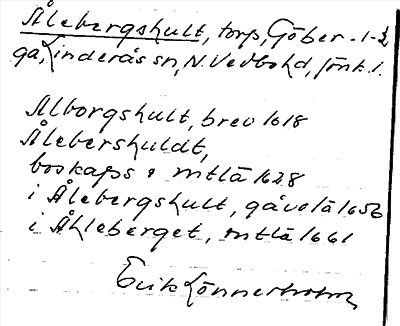 Ålebergshult, torp, Göber-
ga, Linderås sn, N. Vedbo hd, Jönk. l.
Alborgshult, brev 1618
Ålebershuldt,
boskaps mtlä 1628
i Ålebergshult, gåvolä 1656
i Åhleberget, mtlä 1661
Erik Lönnerholm